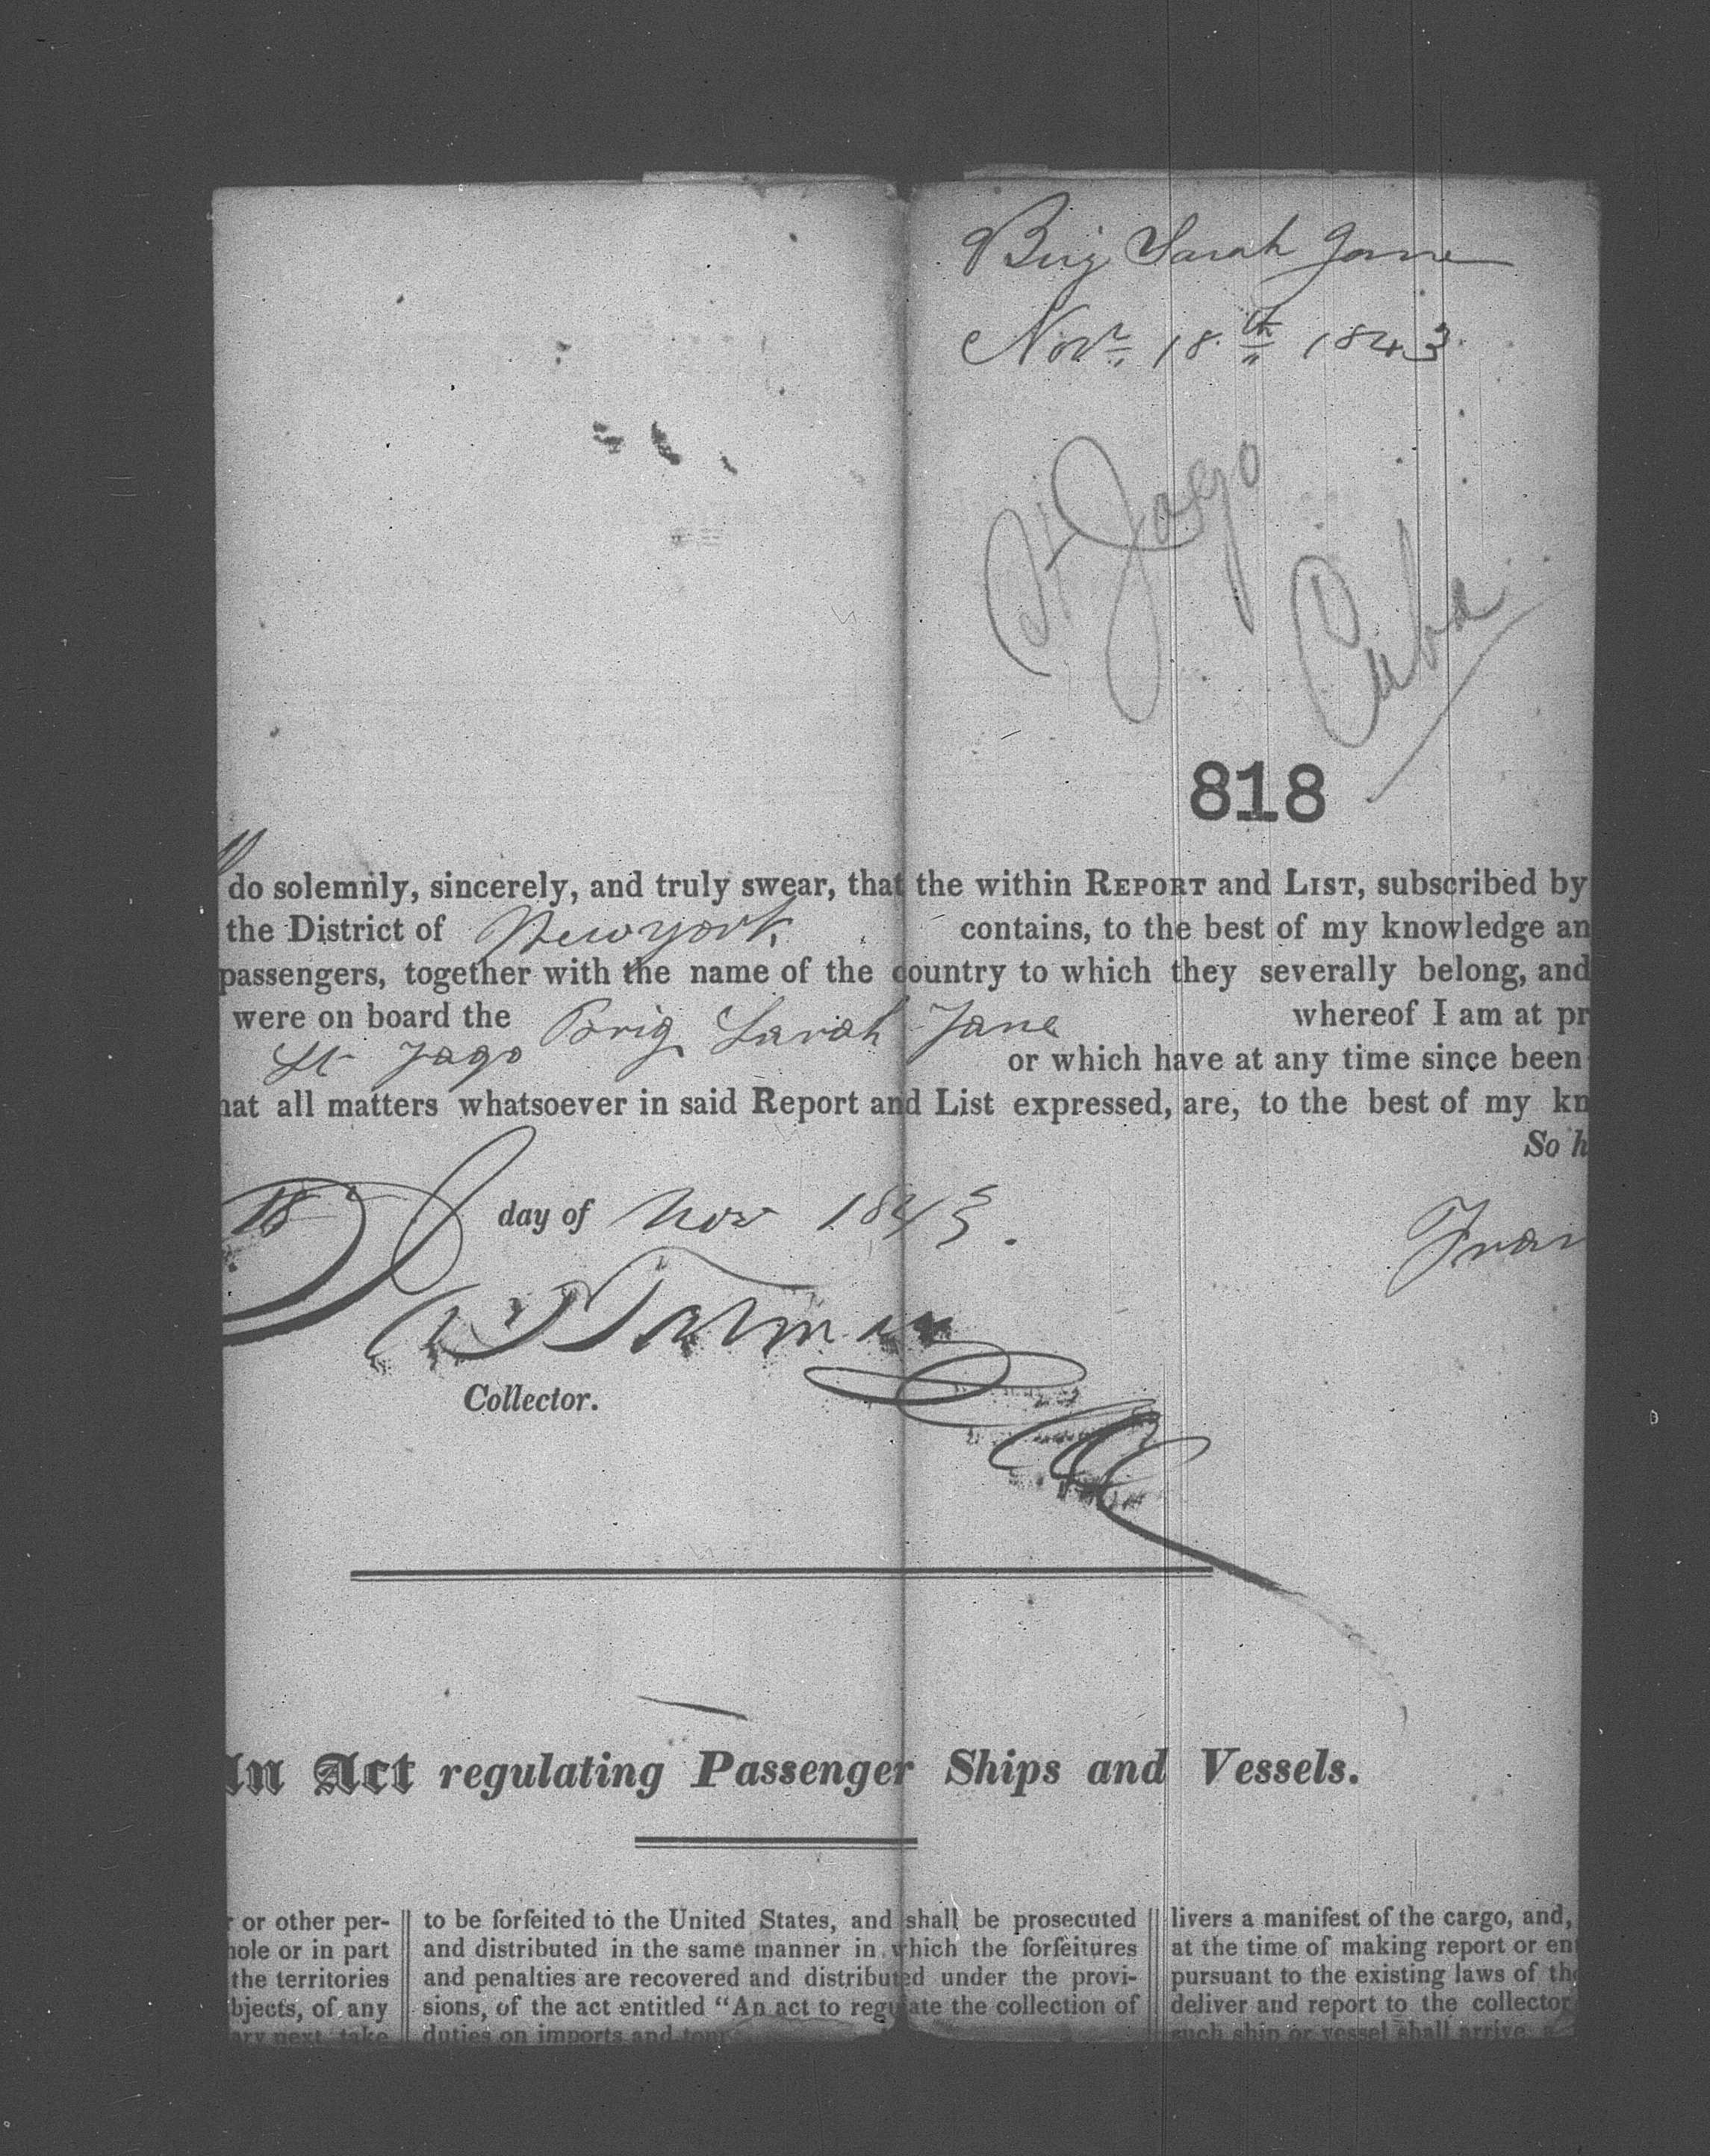 Brig Sarah Jane
Novr 18th 1843
St Jago
Cuba
818
do solemnly, sincerely, and truly swear, that the within REPORT and LIST, subscribed by
the District of New York contains, to the best of my knowledge an
passengers, together with the name of the country to which they severally belong, and
were on board the Brig Sarah Jane whereof I am at pr
St Jago or which have at any time since been
hat all matters whatsoever in said Report and List expressed, are, to the best of my kn
So h
18 day of Nov 1843.
Fran
Collector.
An Act regulating Passenger Ships and Vessels.
r or other per-
hole or in part
the territories
bjects, of any
ary next, take
to be forfeited to the United States, and shall be prosecuted
and distributed in the same manner in which the forfeitures
and penalties are recovered and distributed under the provi-
sions, of the act entitled "An act to regulate the collection of
duties on imports and tonn
livers a manifest of the cargo, and,
at the time of making report or en
pursuant to the existing laws of the
deliver and report to the collector
such ship or vessel shall arrive, a